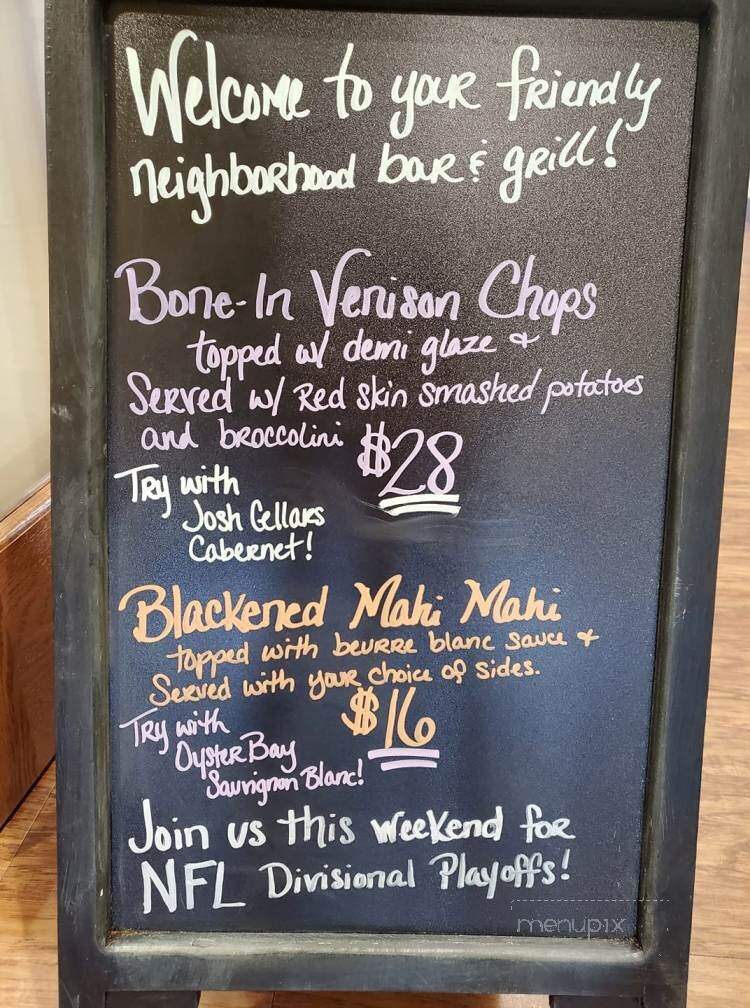 Welcome to your friendly
neighborhood bar & grill!
Bone-In Venison Chops
topped w/ demi glaze &
Served w/ Red Skin smashed potatoes
and broccolini $28
Try with
Josh Cellars
Cabernet!
Blackened Mahi Mahi
topped with beurre blanc sauce &
Served with your choice of sides.
$16
Try with
Oyster Bay
Sauvignon Blanc!
Join us this weekend for
NFL Divisional Playoffs!
menupix